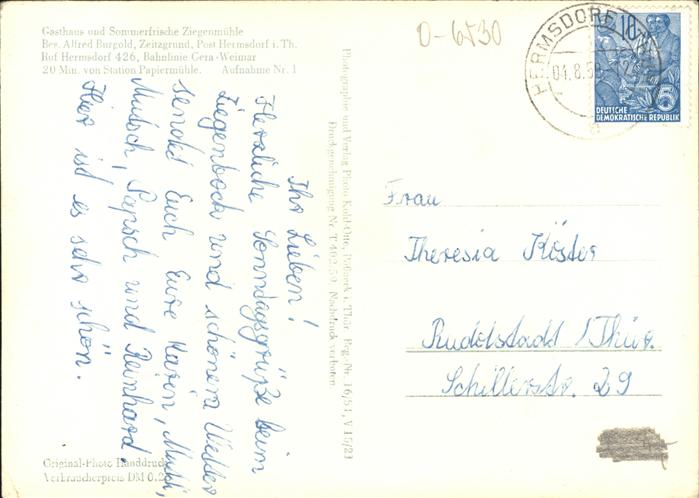 Gasthaus und Sommerfrische Ziegenmühle
Bes. Alfred Burgold, Zeitzgrund, Post Hermsdorf i. Th.
Ruf Hermsdorf 426, Bahnlinie Gera-Weimar
20 Min. von Station Papiermühle. Aufnahme Nr. 1
O-6530
HERMSDORF
04.8.5
10
5
DEUTSCHE
DEMOKRATISCHE REPUBLIK
Ihr Lieben!
Herzliche Sonntagsgrüße beim
Ziegenbock und schönem Wetter
sendet Euch Eure Karin, Mutti,
Mutsch, Papsch und Reinhard.
Hier ist es sehr schön.
Photographie und Verlag Photo Kohl-Otto, Pößneck i. Thür. Reg.-Nr. 16/51, V 15/21
Druckgenehmigung Nr. T 462/50. Nachdruck verboten
Frau
Theresia Köster
Rudolstadt/Thür.
Schillerstr. 29
Original-Photo Handdruck
Verbraucherpreis DM 0.2